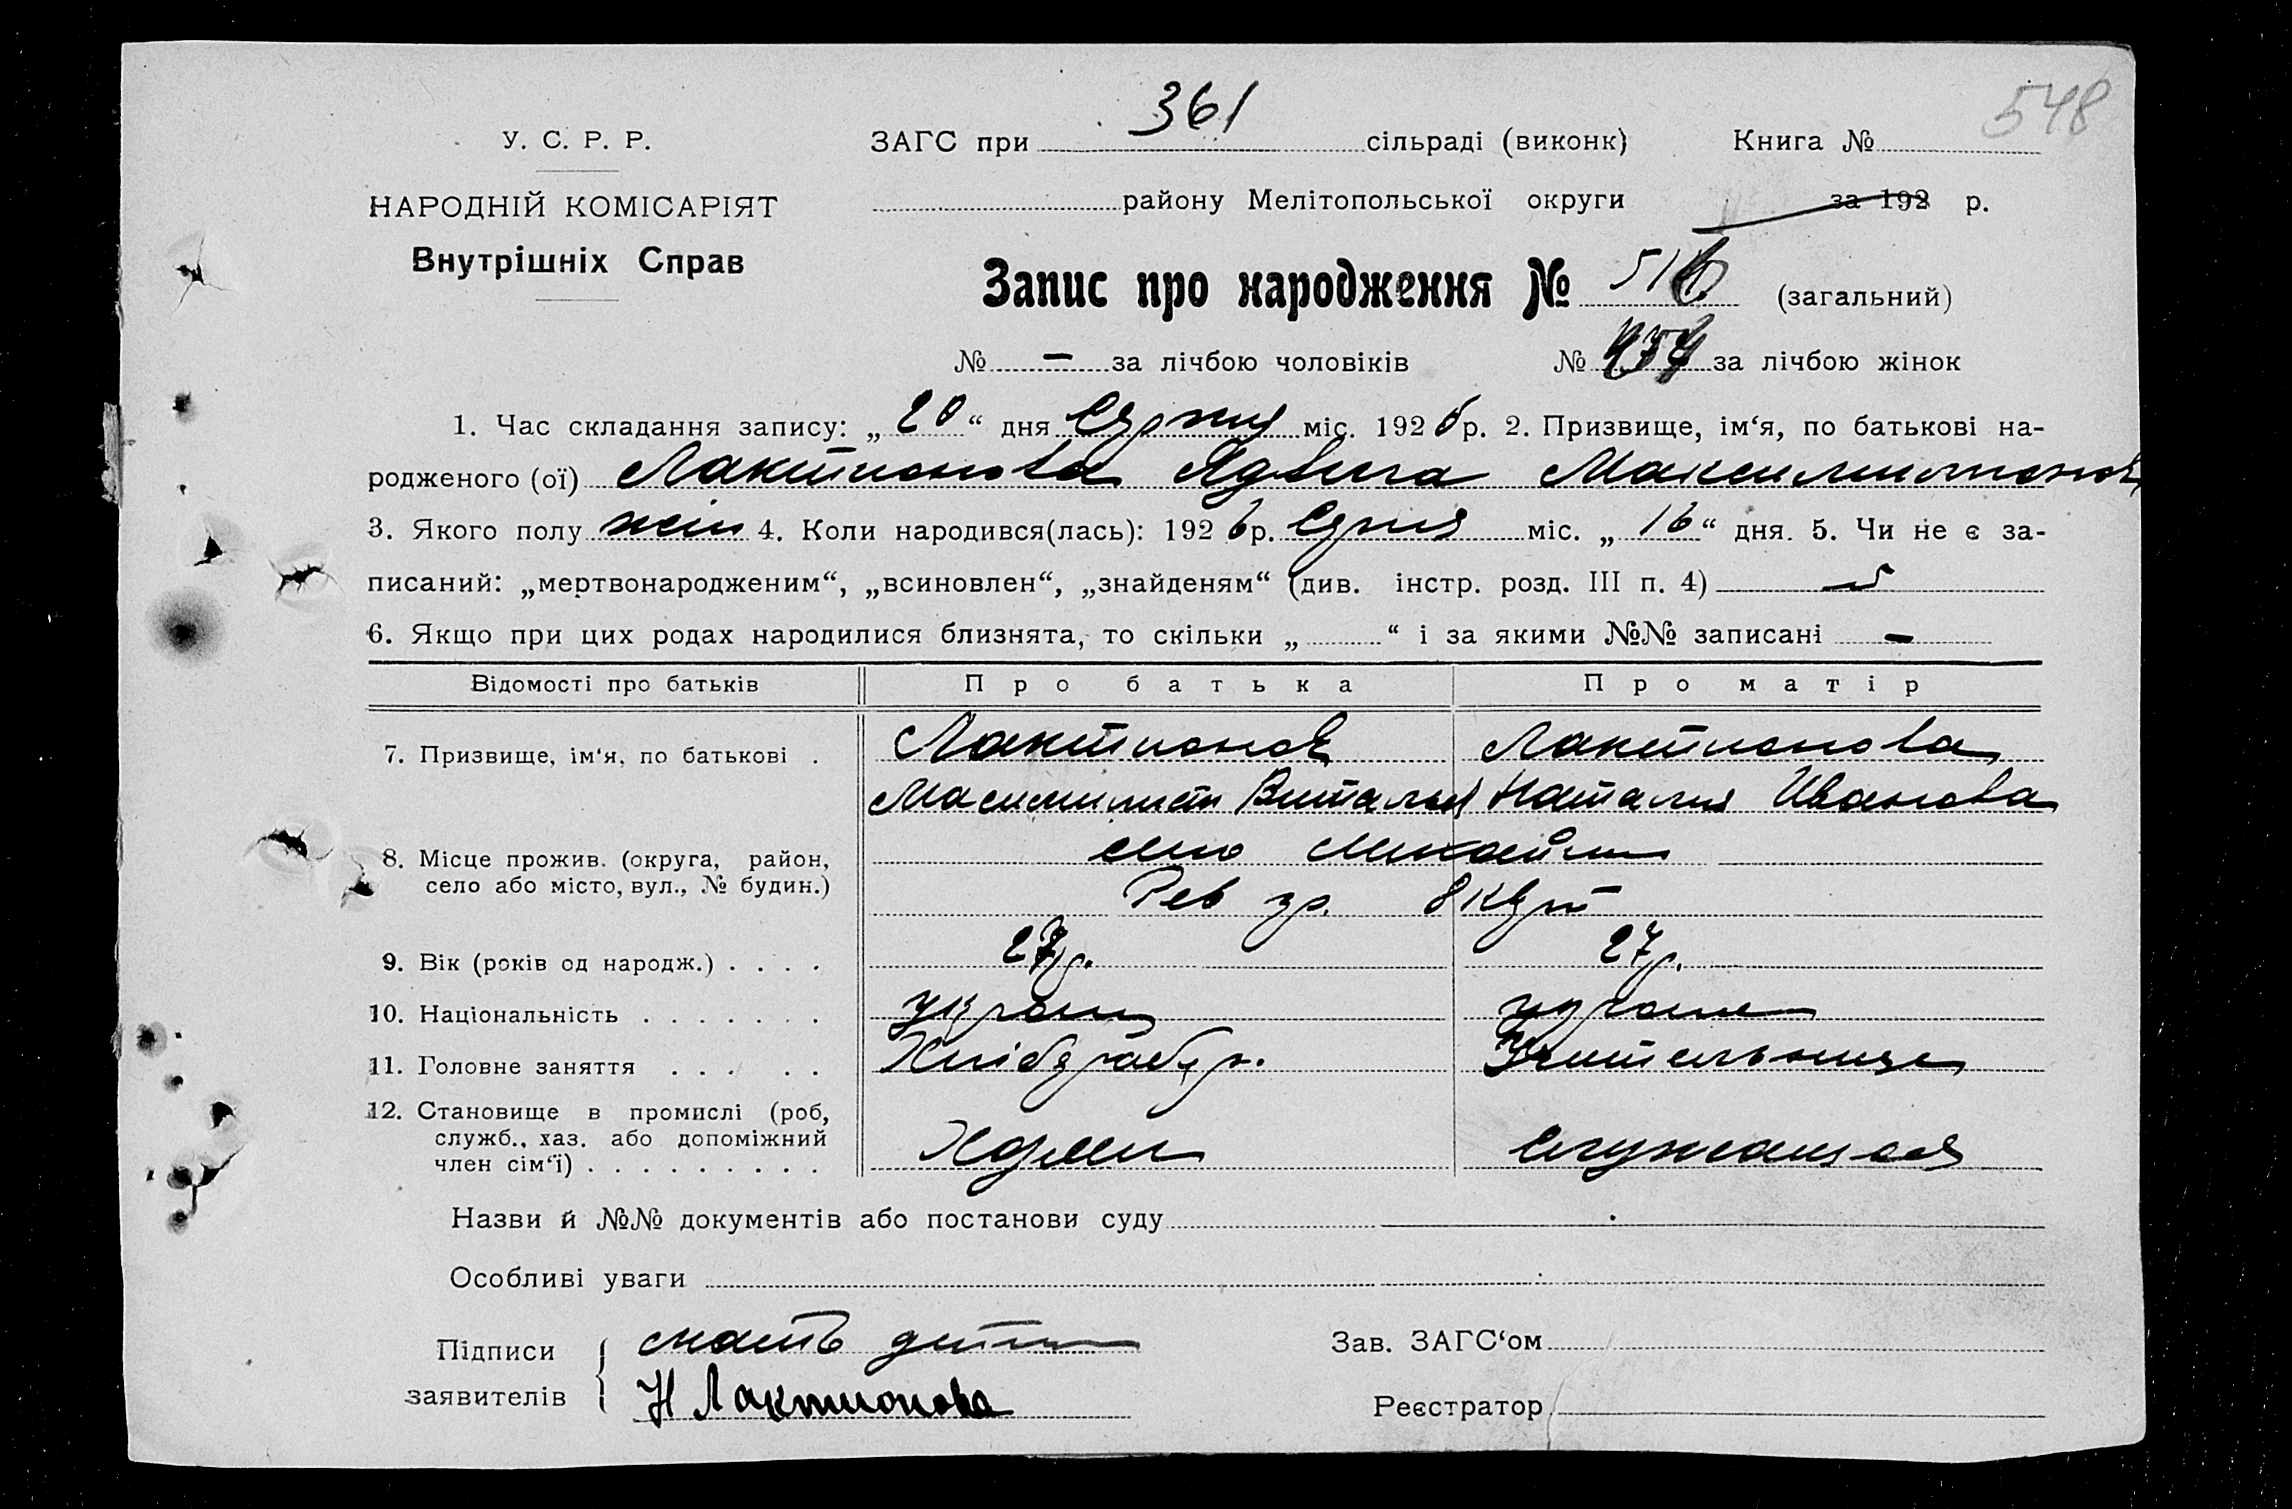 548
361
У. С. Р. Р. ЗАГС при сільраді (виконк) Книга №
НАРОДНІЙ КОМІСАРІЯТ району Мелітопольської округи за 192 р.
Внутрішніх Справ
Запис про народження № 516 (загальний)
№ — за лічбою чоловіків № за лічбою жінок
1. Час складання запису: „20“ дня Серпня міс. 1926 р. 2. Призвище, ім‘я, по батькові на-
родженого (ої) Лактионова Ядвига
3. Якого полу жін 4. Коли народився(лась): 1926 р. Серпня міс. „16“ дня. 5. Чи не є за-
писаний: „мертвонародженим“, „всиновлен“, „знайденям“ (див. інстр. розд. III п. 4)
6. Якщо при цих родах народилися близнята, то скільки „ “ і за якими №№ записані —
Відомості про батьків Про батька Про матір
7. Призвище, ім‘я, по батькові . Лактионов Лактионова
Наталия Иванова
8. Місце прожив. (округа, район, село
село або місто, вул., № будин.) Рев
9. Вік (років од народж.) . . . . 27 р. 27 р.
10. Національність . . . . . . . украин
11. Головне заняття . . . . . Учительница
12. Становище в промислі (роб,
служб., хаз. або допоміжний служащая
член сім‘ї) . . . . . . . . .
Назви й №№ документів або постанови суду
Особливі уваги
Підписи мать Зав. ЗАГС‘ом
заявителів Н Лактионова Реєстратор